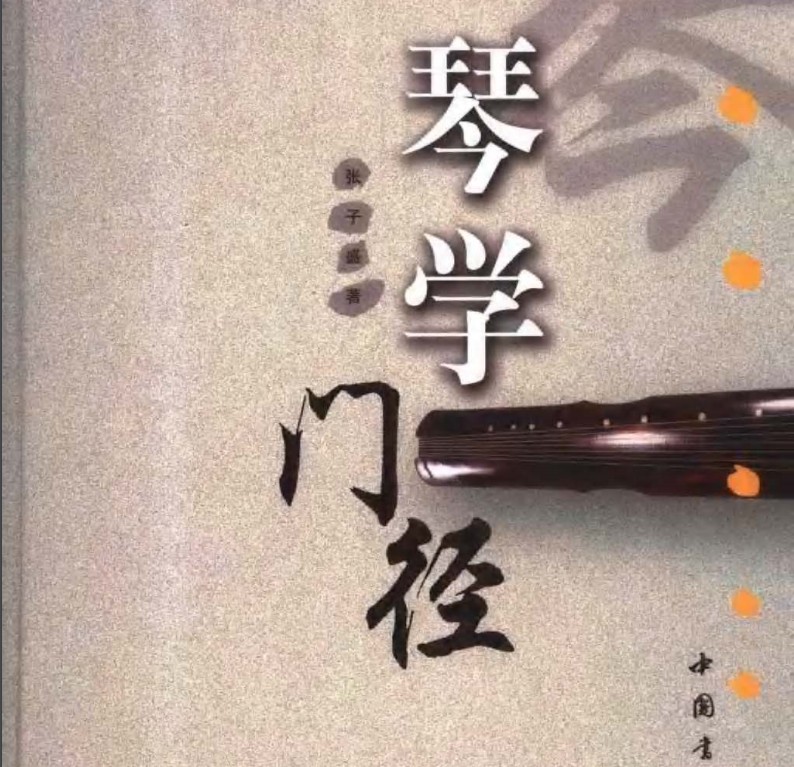 琴学
门径
张子盛著
中国书